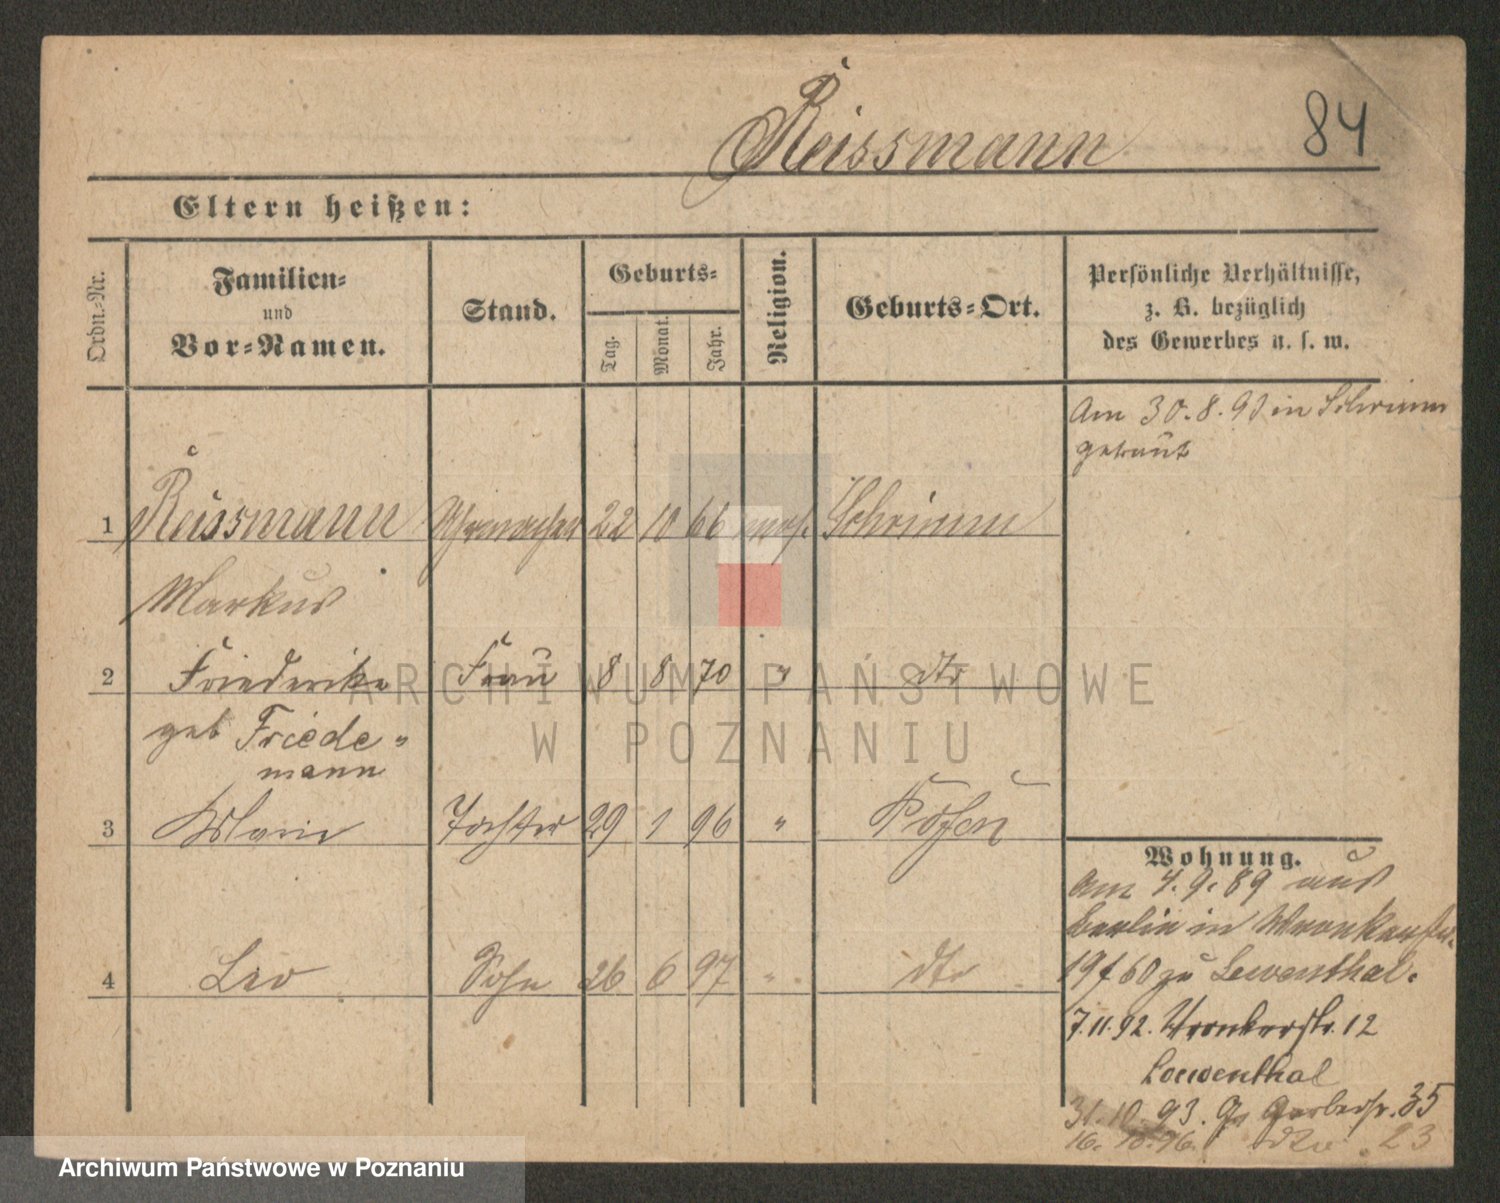 Reissmann 84
Eltern heißen:
Ordn.-Nr.
Familien-
und
Vor-Namen.
Stand.
Geburts-
Tag.
Monat.
Jahr.
Religion.
Geburts-Ort.
Persönliche Verhältnisse,
z. B. bezüglich
des Gewerbes u. s. w.
Am 30.8.93 in Schrimm
getraut
1 Reissmann Uhrmacher 22 10 66 mos. Schrimm
Markus
2 Friederike Frau 8 8 70 " dto
geb Friede-
mann
3 Marie Tochter 29 1 96 " Posen
4 Leo Sohn 26 6 97 " dto
Wohnung.
Am 4.9.89 aus
Berlin in Wronkerstr.
19/60 zu Lewenthal.
7.11.92. Wronkerstr. 12
Loewenthal
31.10.93. Gerberstr. 35
16.10.96. dto 23
ARCHIWUM PAŃSTWOWE
W POZNANIU
Archiwum Państwowe w Poznaniu